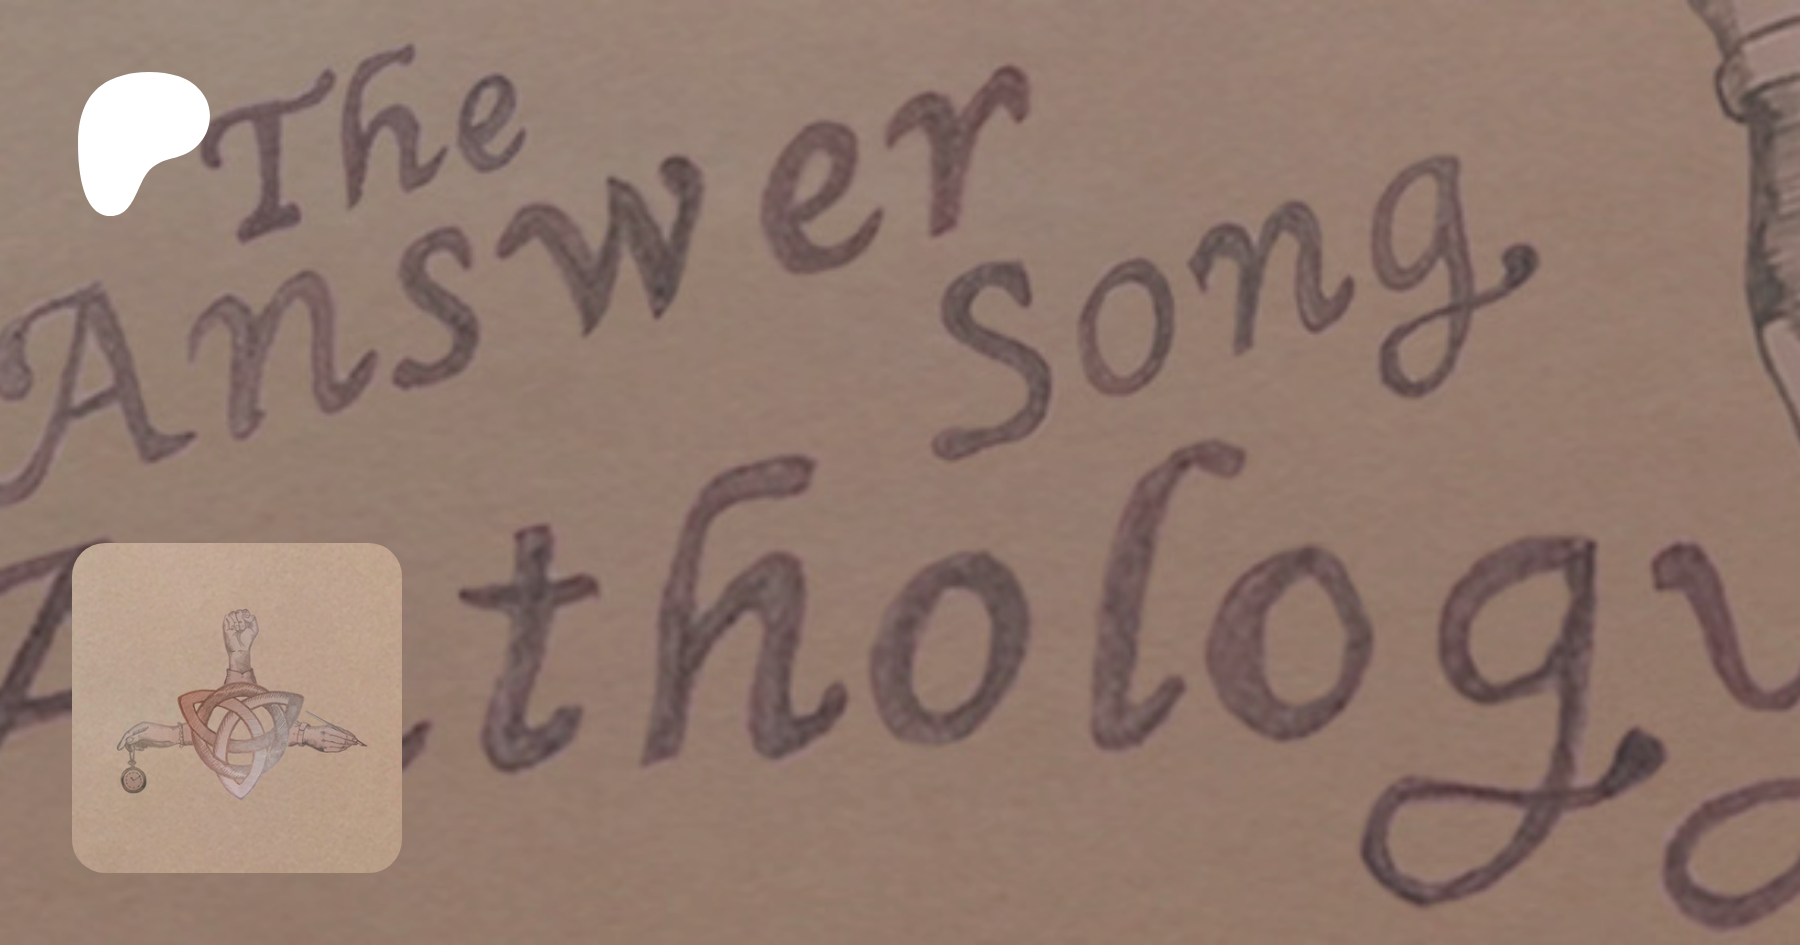 The
Answer
Song
Anthology